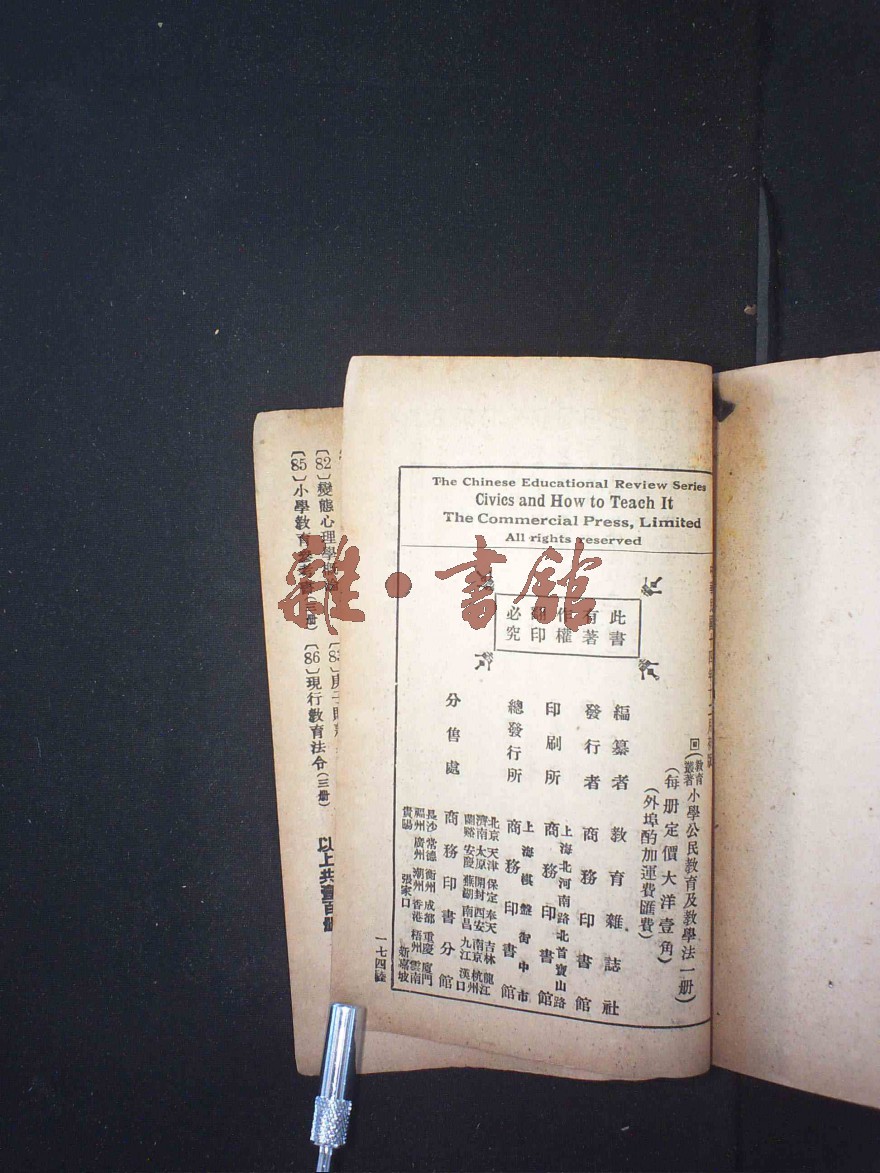 The Chinese Educational Review Series
Civics and How to Teach It
The Commercial Press, Limited
All rights reserved
此書
有著
作權
翻印
必究
教育叢著
小學公民教育及教學法一册)
(每册定價大洋壹角)
(外埠酌加運費匯費)
編纂者 教育雜誌社
發行者 商務印書館
印刷所 上海北河南路北首寶山路 商務印書館
總發行所 上海棋盤街中市 商務印書館
分售處 商務印書分館
北京 天津 保定 奉天 吉林 龍江
濟南 太原 開封 西安 南京 杭州
蘭谿 安慶 蕪湖 南昌 九江 漢口
長沙 常德 衡州 成都 重慶 廈門
福州 廣州 潮州 香港 梧州 雲南
貴陽 張家口 新嘉坡
一七四
〔82〕變態心理學
〔85〕小學教育
(三册)
〔86〕現行教育法令(三册)
以上共壹百册
雜·書館